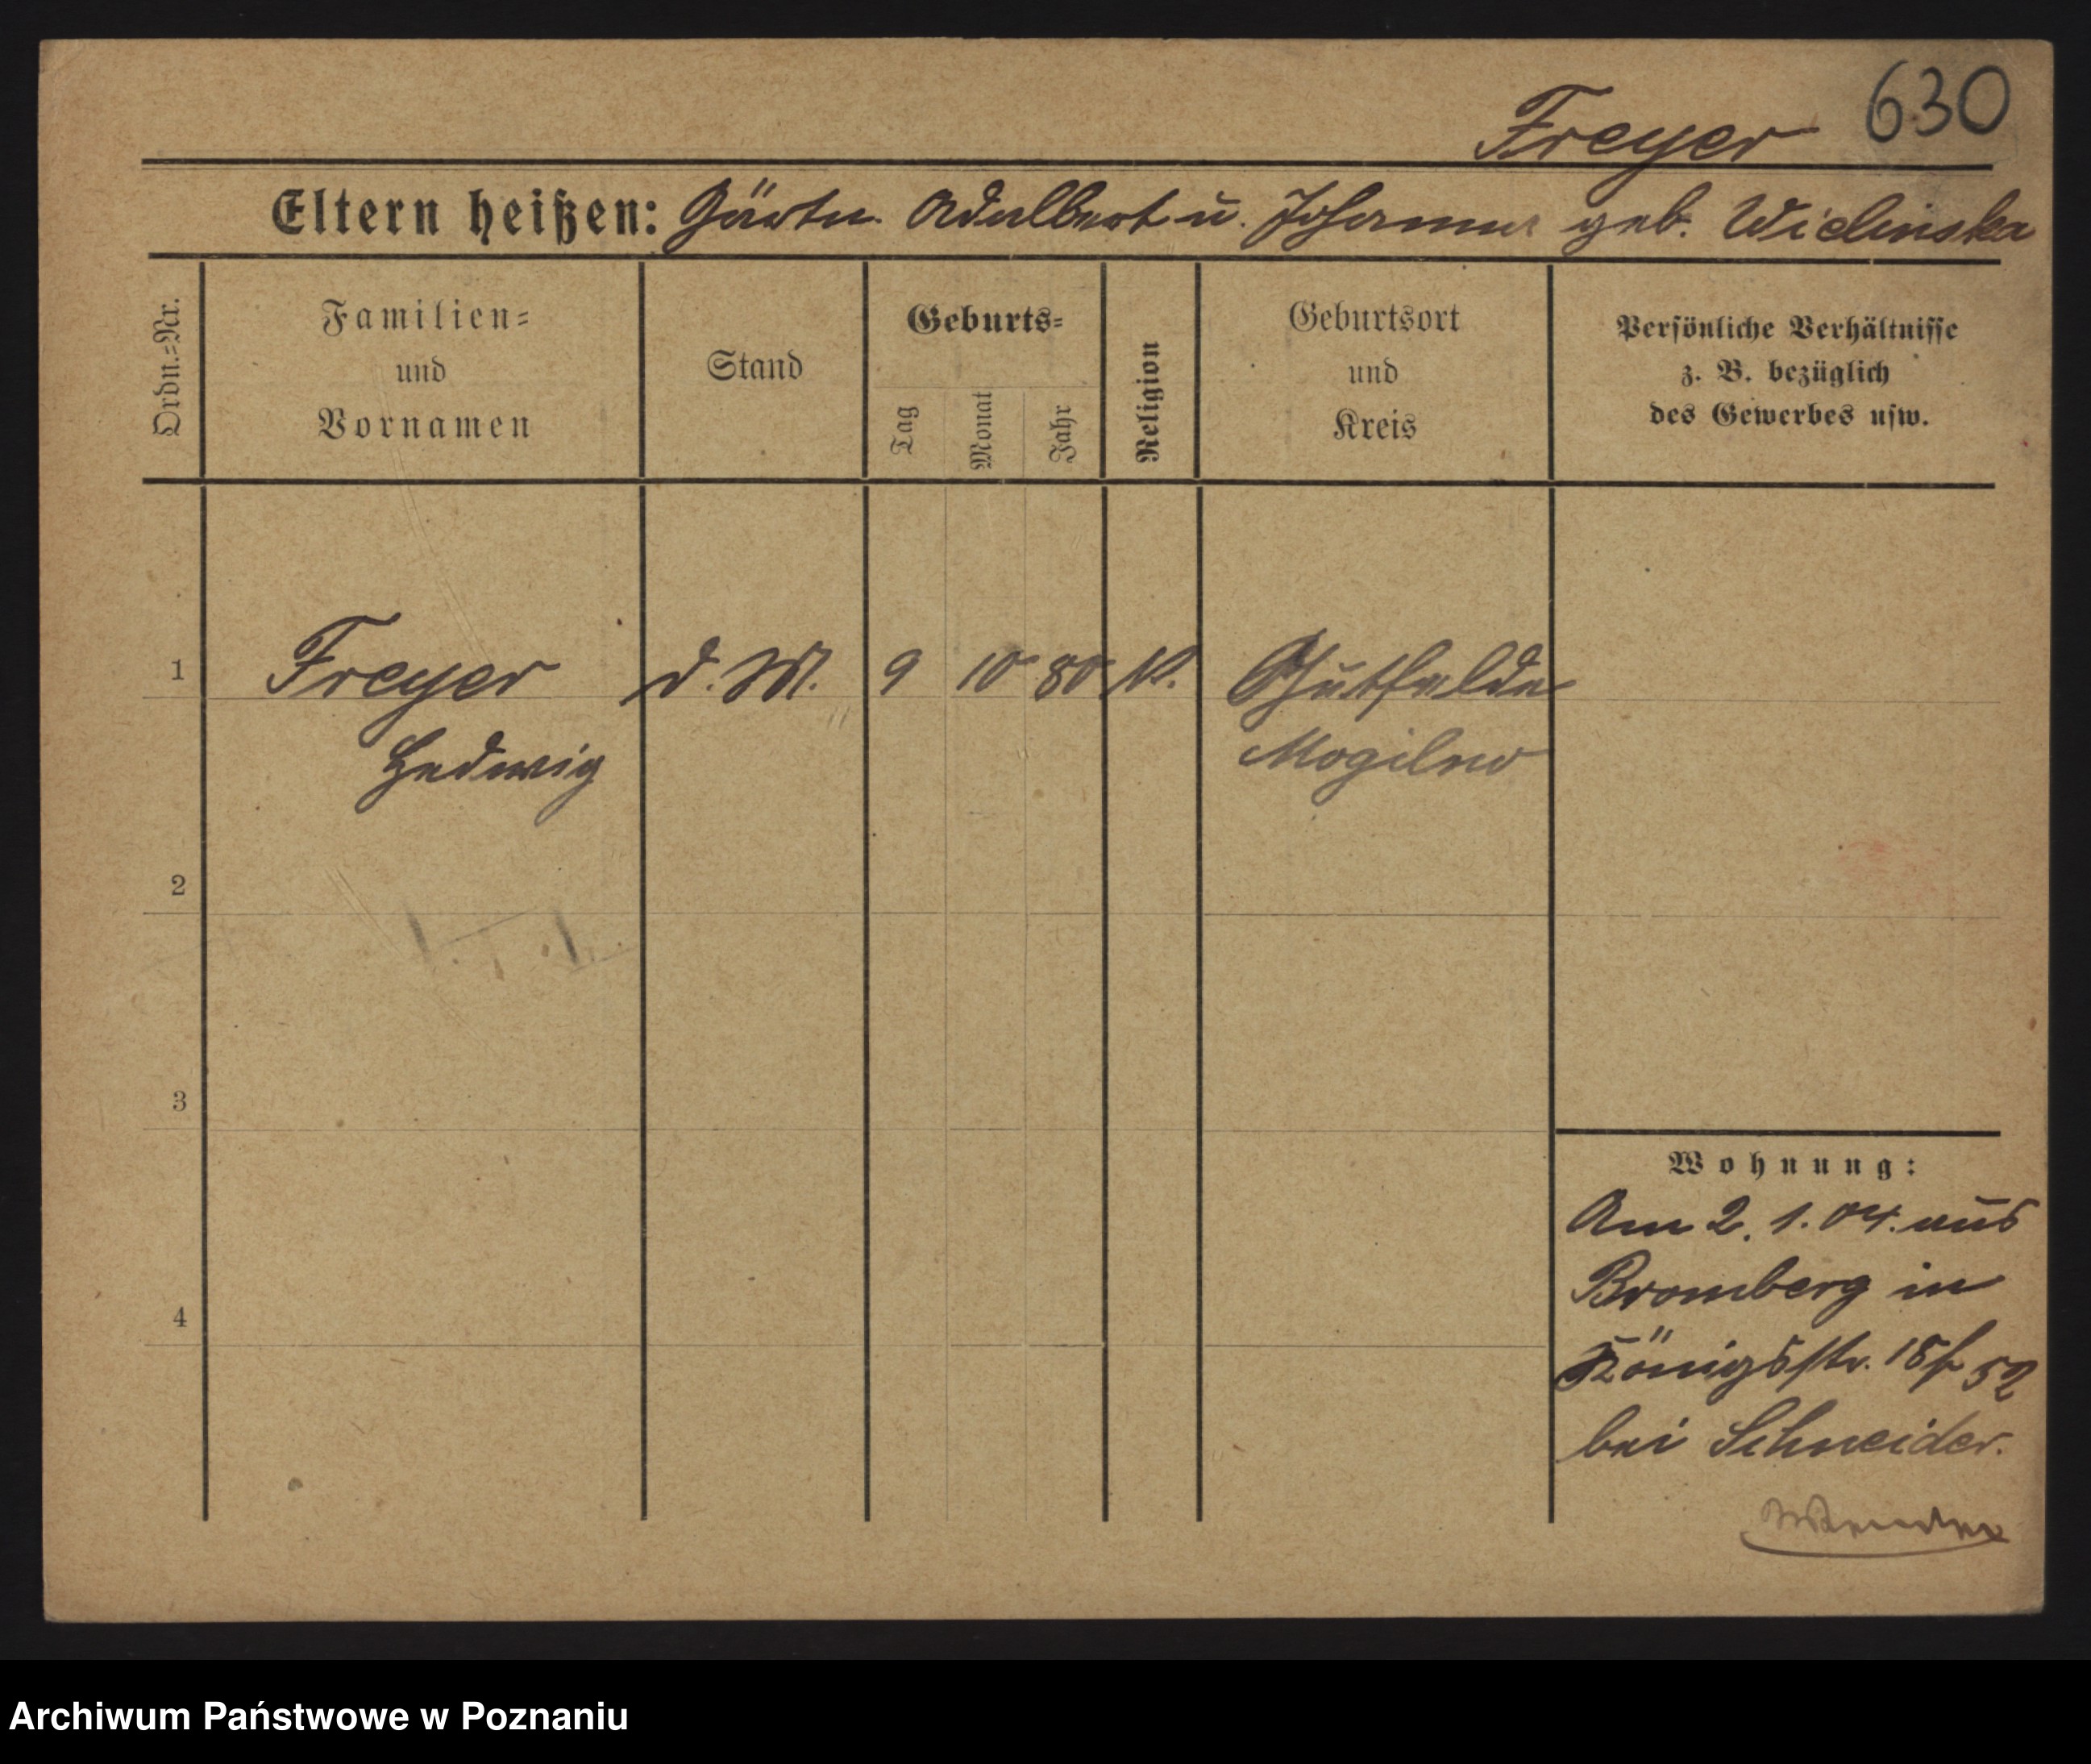 630
Freyer
Eltern heißen: Gärtn. Adalbert u. Johanna geb. Wielinska
Ordn.=Nr.
Familien=
und
Vornamen
Stand
Geburts=
Tag
Monat
Jahr
Religion
Geburtsort
und
Kreis
Persönliche Verhältnisse
z. B. bezüglich
des Gewerbes usw.
1 Freyer d. M. 9 10 80 K. Gutfelde
Hedwig Mogilno
2
3
4
Wohnung:
Am 2. 1. 04. aus
Bromberg in
Königsstr. 18
bei Schneider.
Archiwum Państwowe w Poznaniu